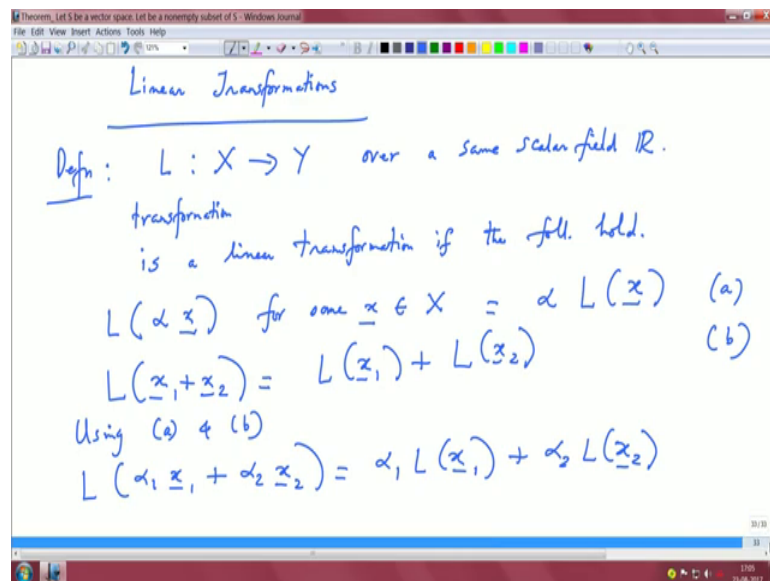 Theorem_ Let S be a vector space. Let be a nonempty subset of S - Windows Journal
File Edit View Insert Actions Tools Help
121%
B I
Linear Transformations
Defn : L : X → Y over a same scalar field ℝ.
transformation
is a linear transformation if the foll. hold.
L(α x) for some x ∈ X = α L(x) (a)
L(x₁+x₂) = L(x₁) + L(x₂) (b)
Using (a) & (b)
L(α₁ x₁ + α₂ x₂) = α₁ L(x₁) + α₂ L(x₂)
33/33
33
17:05